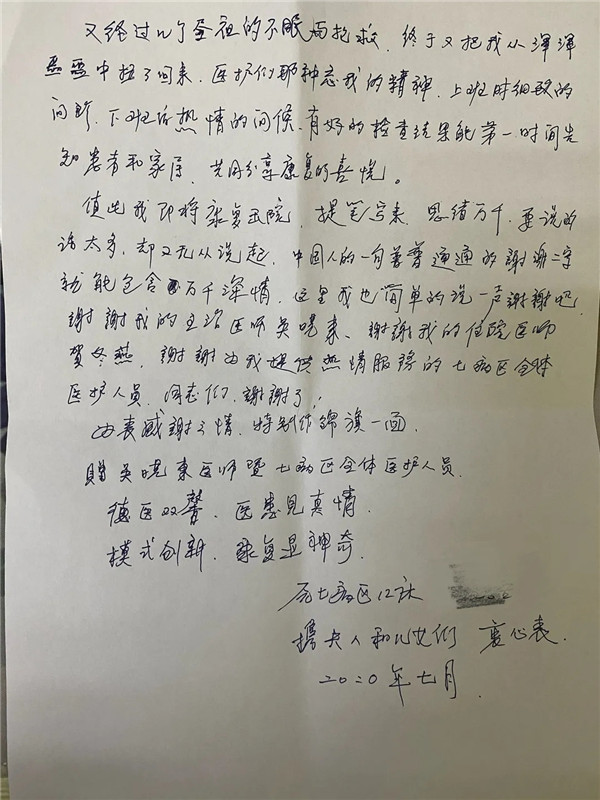 又经过几个昼夜的不眠与抢救，终于又把我从浑浑
噩噩中拉了回来，医护们那种忘我的精神，上班时细致的
问诊，下班后热情的问候，有好的检查结果能第一时间告
知患者和家属，共同分享康复的喜悦。
值此我即将康复出院，提笔写来，思绪万千，要说的
话太多，却又无从说起，中国人的一句普普通通的謝謝二字
就能包含万千深情，这里我也简单的说一声謝謝吧，
謝謝我的主治医师吴晓东、謝謝我的住院医师
贺冬燕，謝謝为我提供热情服务的七病区全体
医护人员，同志们，謝謝了！
由衷感謝之情，特别作錦旗一面，
贈吴晓東医师暨七病区全体医护人员
德医双馨、医患见真情，
模式创新、康复显神奇。
原七病区12床
携夫人和儿女们 衷心表
二〇二〇年七月